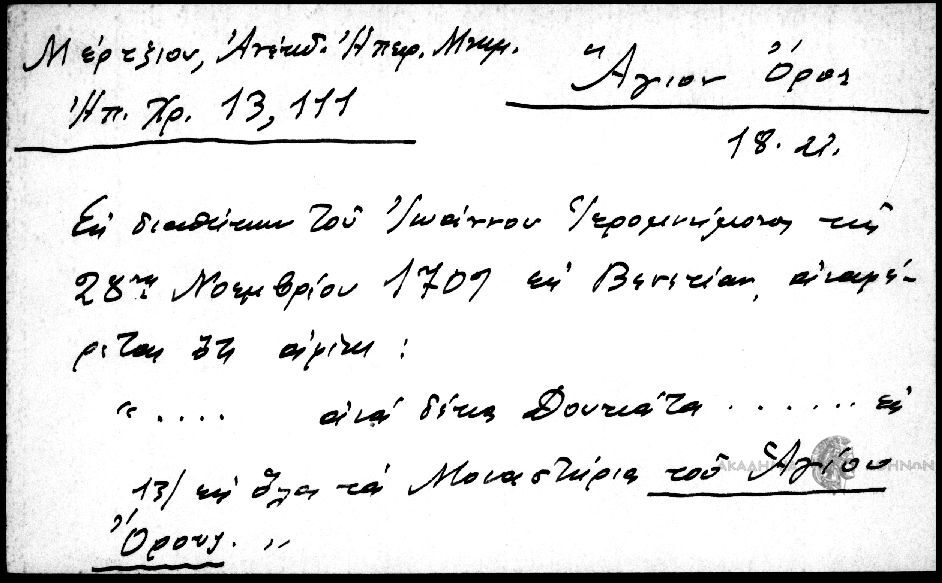 Μέρτζιου, Ἀνέκδ. Ἠπειρ. Μνημ.
Ἠπ. Χρ. 13, 111
Ἅγιον Ὄρος
18. 22.
Ἐκ διαθήκης τοῦ Ἰωάννου Ἱερομνήμονος τῆς
28ης Νοεμβρίου 1709 ἐκ Βενετίας, ἀναφέ-
ρεται ὅτι ἀφίνει :
".... ἀνά δέκα Δουκάτα ....... εἰς
13/ εἰς ὅλα τά Μοναστήρια τοῦ Ἁγίου
Ὄρους. "
ΑΚΑΔΗΜΙΑ ΑΘΗΝΩΝ